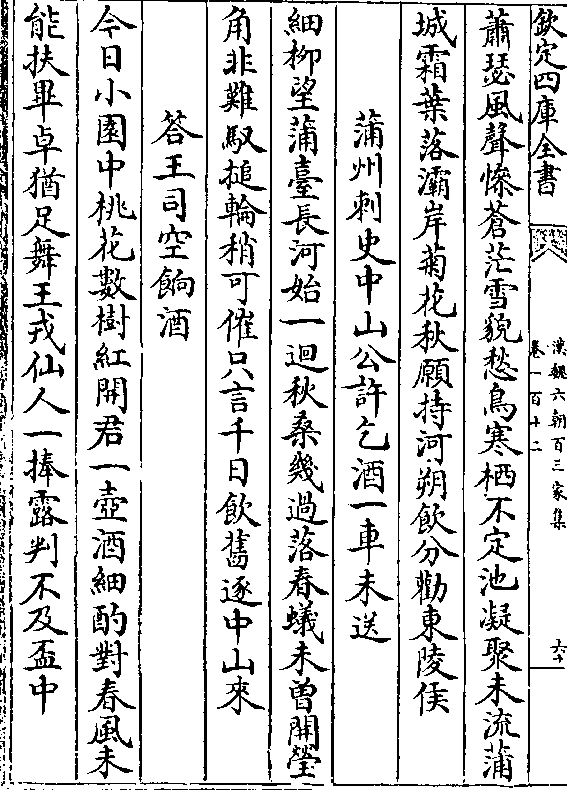 欽定四庫全書
漢魏六朝百三家集
卷一百十二
六十
蕭瑟風聲慘蒼茫雪貌愁鳥寒栖不定池凝聚未流蒲
城霜葉落灞岸菊花秋願持河朔飲分勸東陵侯
蒲州刺史中山公許乞酒一車未送
細柳望蒲臺長河始一迴秋桑幾過落春蟻未曾開瑩
角非難馭搥輪稍可催只言千日飲舊逐中山來
答王司空餉酒
今日小園中桃花數樹紅開君一壺酒細酌對春風未
能扶畢卓猶足舞王戎仙人一捧露判不及盃中